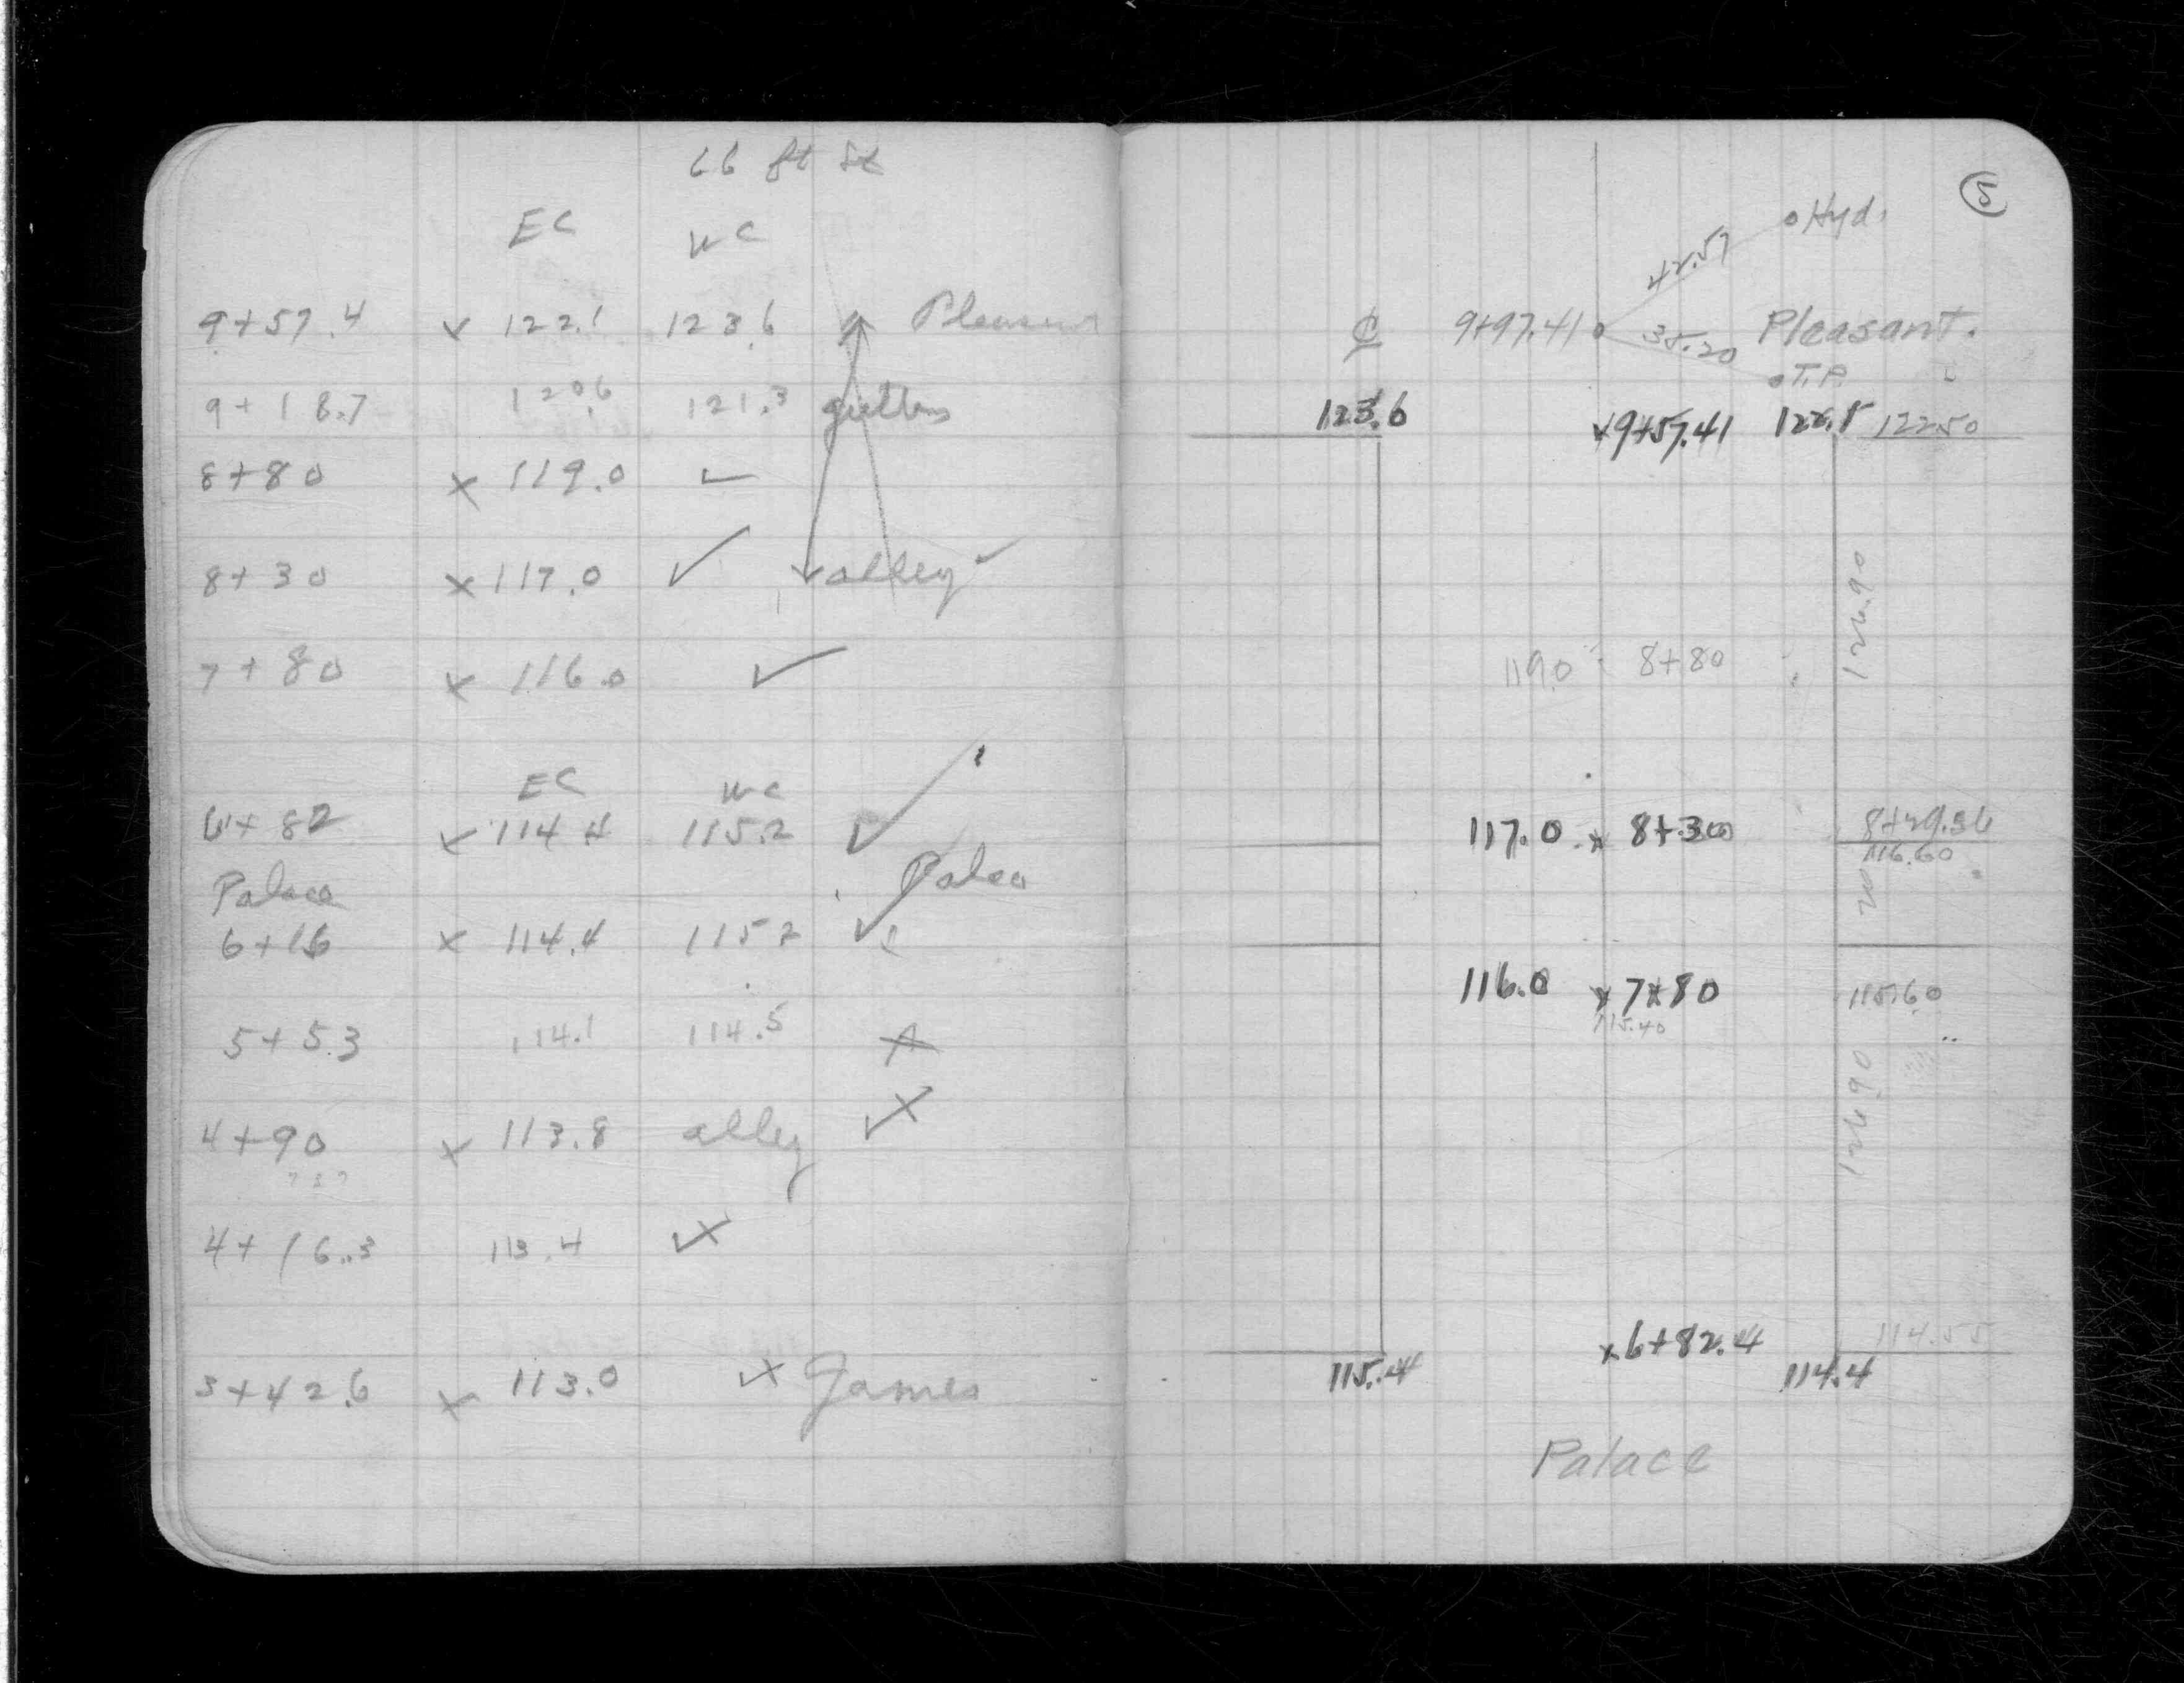 66 ft St
EC WC
9+57.4 x 122.1 123.6 Pleasant
9+18.7 120.6 121.3 gutters
8+80 x 119.0 ✓
8+30 x 117.0 ✓ alley ✓
7+80 x 116.0 ✓
EC WC
6+82 x 114.4 115.2 ✓
Palace Palace
6+16 x 114.4 115.2 ✓
5+53 114.1 114.5
4+90 x 113.8 alley
4+16.3 113.4
3+42.6 x 113.0 x James
5
Hyd.
42.57
℄ 9+97.41 35.20 Pleasant.
T.P.
123.6 x9+57.41 122.50
126.90
119.0 8+80
117.0 x 8+30 8+29.36
116.60
20
116.0 x 7+80 115.60
115.40
126.90
x6+82.4 114.55
115.4 114.4
Palace